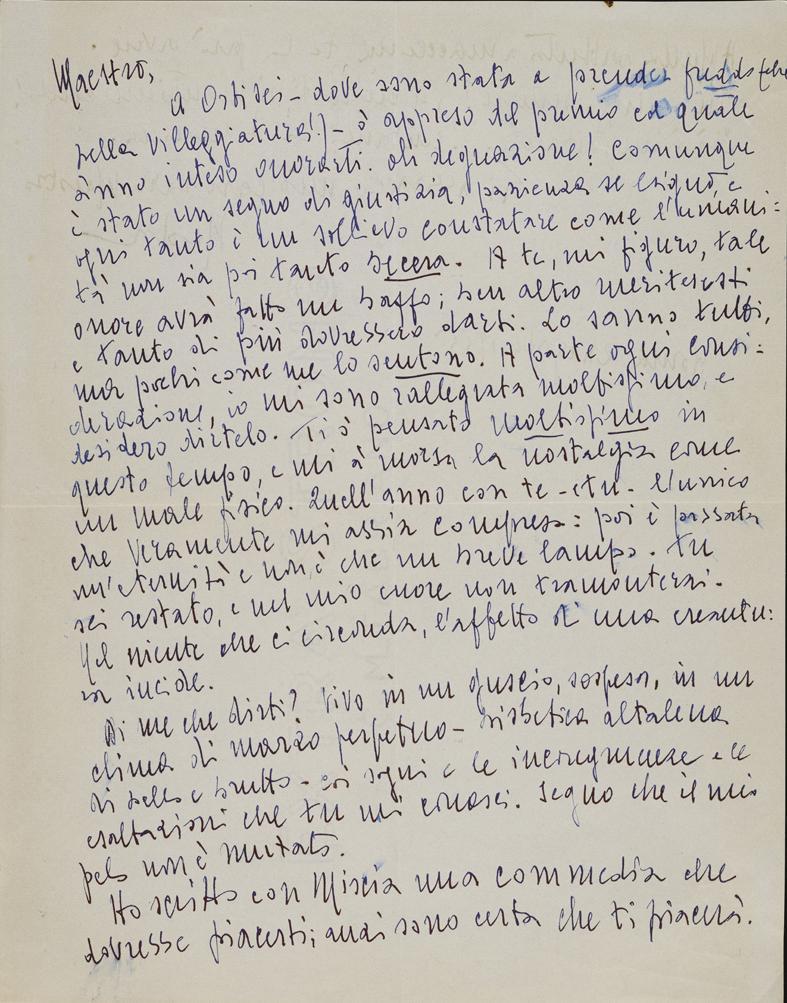 Maestro,
a Ortisei – dove sono stata a prender freddo (che
bella villeggiatura!) – ò appreso del premio col quale
ànno inteso onorarti. Oh degnazione! Comunque
è stato un segno di giustizia, parienza se esiguo, e
ogni tanto è un sollievo constatare come l'umani=
tà non sia poi tanto becera. A te, mi figuro, tale
onore avrà fatto un baffo; ben altro meriteresti
e tanto di più dovrebbero darti. Lo sanno tutti,
ma pochi come me lo sentono. A parte ogni consi=
derazione, io mi sono rallegrata moltissimo, e
desidero dirtelo. Ti ò pensato moltissimo in
questo tempo, e mi à morsa la nostalgia come
un male fisico. Quell'anno con te – e tu – l'unico
che veramente mi abbia compresa: poi è passata
un'eternità e non è che un breve lampo. Tu
sei restato, e nel mio cuore non tramonterai.
Nel niente che ci circonda, l'affetto di una creatu=
ra incide.
Di me che dirti? Vivo in un guscio, sospesa, in un
clima di marzo perpetuo – bisbetica altalena
di bello e brutto – coi sogni e le incongruenze e le
esaltazioni che tu mi conosci. Segno che il mio
pelo non è mutato.
Ho scritto con Miscia una commedia che
dovrebbe piacerti; anzi sono certa che ti piacerà.